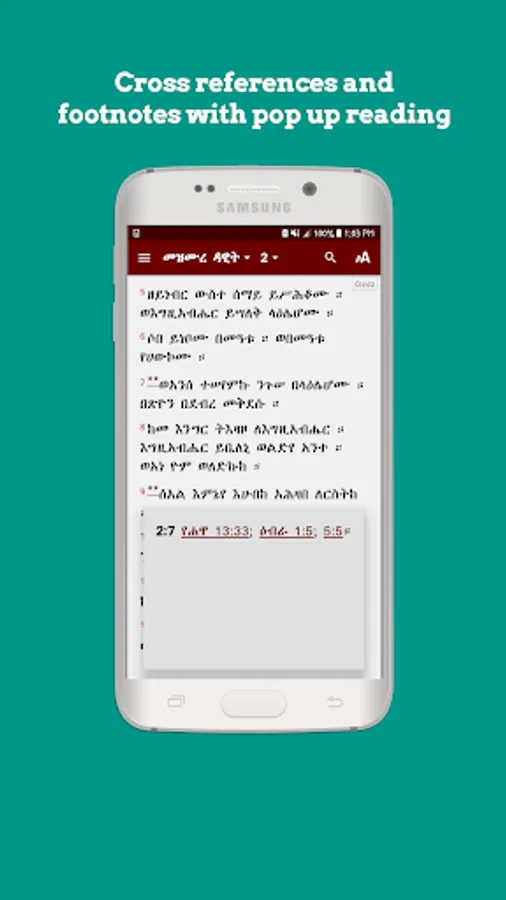 Cross references and
footnotes with pop up reading
SAMSUNG
100% 1:53 PM
መዝሙረ ዳዊት 2
AA
Geez
5 ዘይነብር ውስተ ሰማይ ይሥሕቆሙ ።
ወእግዚአብሔር ይሣለቅ ላዕሌሆሙ ።
6 ሶበ ይነቦሙ በመዓቱ ። ወበመዓቱ
የሀውኮሙ ።
7 **ወአንሰ ተሠየምኩ ንጉሠ በላዕሌሆሙ ።
በጽዮን በደብረ መቅደሱ ።
8 ከመ እንግር ትእዛዞ ለእግዚአብሔር ።
እግዚአብሔር ይቤለኒ ወልድየ አንተ ።
ወአነ ዮም ወለድኩከ ።
9 **ሰአል እምኔየ እሁብከ አሕዛበ ለርስትከ
2:7 የሐዋ 13:33; ዕብራ 1:5; 5:5።